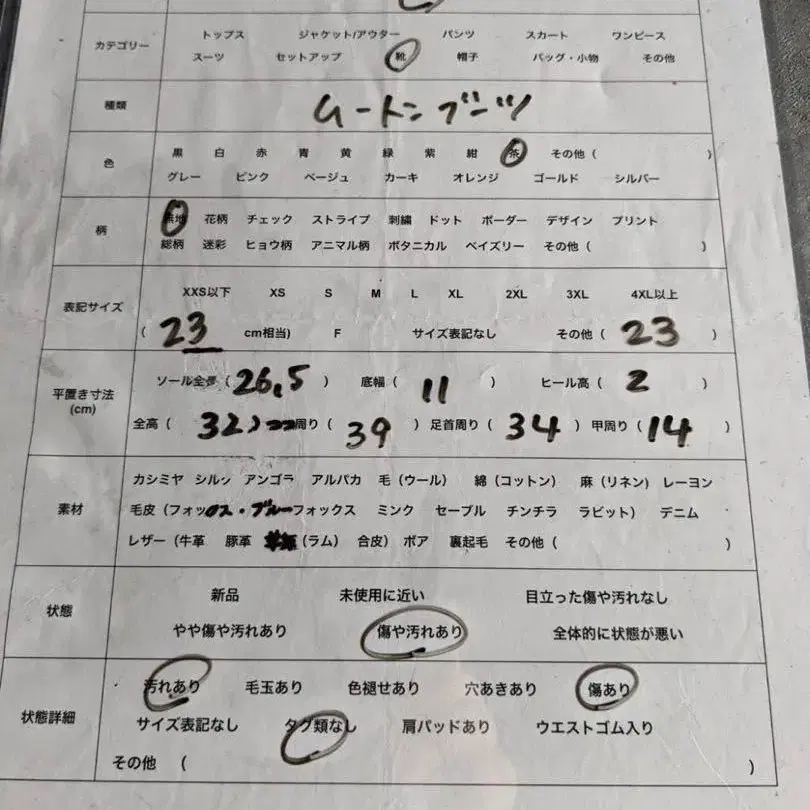 カテゴリー
トップス ジャケット/アウター パンツ スカート ワンピース
スーツ セットアップ 靴 帽子 バッグ・小物 その他
種類
ムートンブーツ
色
黒 白 赤 青 黄 緑 紫 紺 茶 その他 ( )
グレー ピンク ベージュ カーキ オレンジ ゴールド シルバー
柄
無地 花柄 チェック ストライプ 刺繍 ドット ボーダー デザイン プリント
総柄 迷彩 ヒョウ柄 アニマル柄 ボタニカル ペイズリー その他 ( )
表記サイズ
XXS以下 XS S M L XL 2XL 3XL 4XL以上
( 23 cm相当) F サイズ表記なし その他 ( 23 )
平置き寸法
(cm)
ソール全長 ( 26.5 ) 底幅 ( 11 ) ヒール高 ( 2 )
全高 ( 32 ) 周り ( 39 ) 足首周り ( 34 ) 甲周り ( 14 )
素材
カシミヤ シルク アンゴラ アルパカ 毛 (ウール) 綿 (コットン) 麻 (リネン) レーヨン
毛皮 (フォックス・ブルーフォックス ミンク セーブル チンチラ ラビット) デニム
レザー (牛革 豚革 (ラム) 合皮) ボア 裏起毛 その他 ( )
状態
新品 未使用に近い 目立った傷や汚れなし
やや傷や汚れあり 傷や汚れあり 全体的に状態が悪い
状態詳細
汚れあり 毛玉あり 色褪せあり 穴あきあり 傷あり
サイズ表記なし タグ類なし 肩パッドあり ウエストゴム入り
その他 ( )